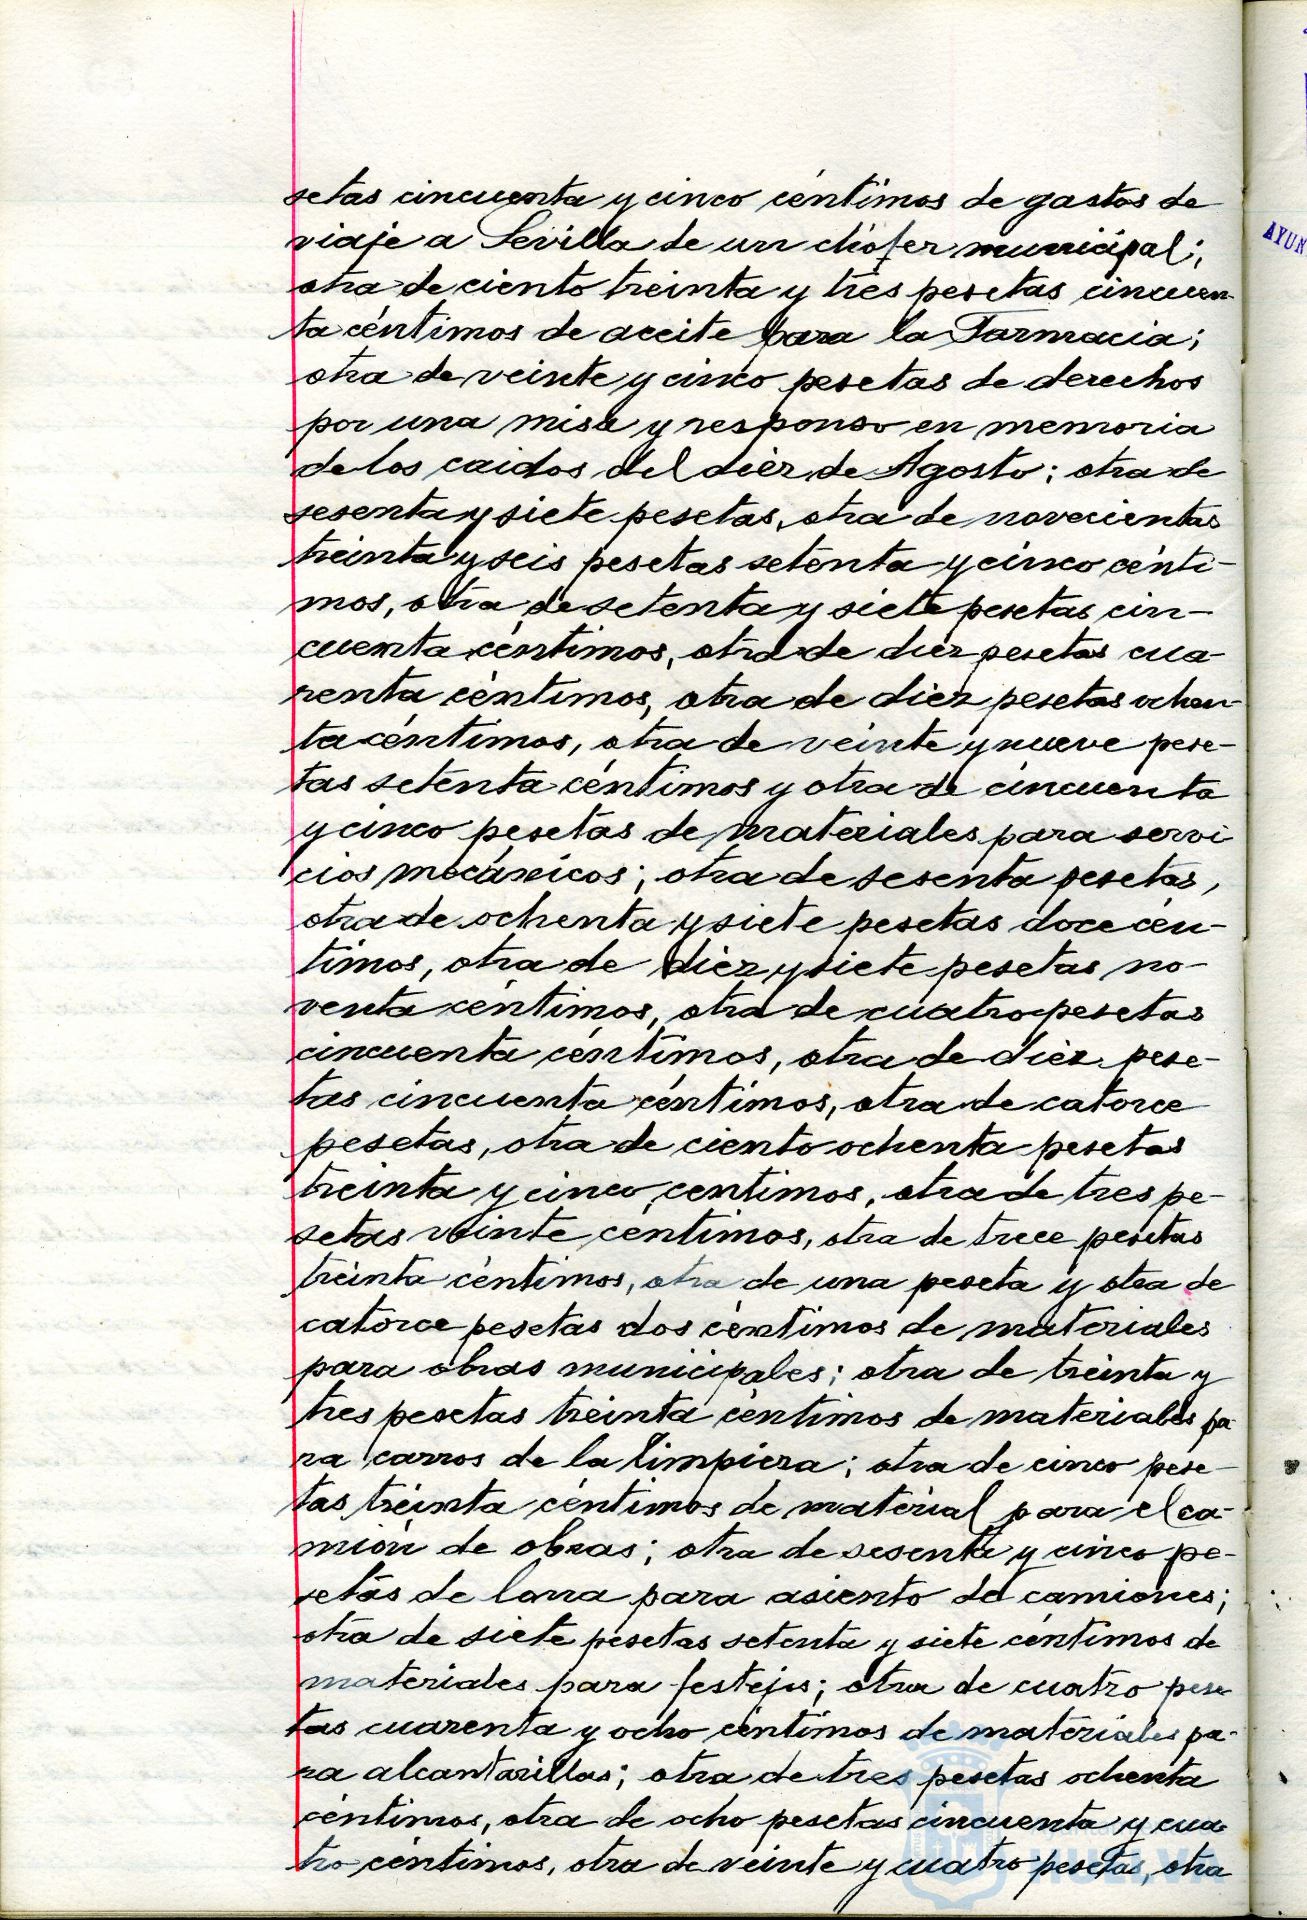 setas cincuenta y cinco céntimos de gastos de
viaje a Sevilla de un chófer municipal;
otra de ciento treinta y tres pesetas cincuen-
ta céntimos de aceite para la Farmacia;
otra de veinte y cinco pesetas de derechos
por una misa y responso en memoria
de los caidos del diez de Agosto; otra de
sesenta y siete pesetas, otra de novecientas
treinta y seis pesetas setenta y cinco cénti-
mos, otra de setenta y siete pesetas cin-
cuenta céntimos, otra de diez pesetas cua-
renta céntimos, otra de diez pesetas ochen-
ta céntimos, otra de veinte y nueve pese-
tas setenta céntimos y otra de cincuenta
y cinco pesetas de materiales para servi
cios mecánicos; otra de sesenta pesetas,
otra de ochenta y siete pesetas doce cén-
timos, otra de diez y siete pesetas no-
venta céntimos, otra de cuatro pesetas
cincuenta céntimos, otra de diez pese-
tas cincuenta céntimos, otra de catorce
pesetas, otra de ciento ochenta pesetas
treinta y cinco centimos, otra de tres pe-
setas veinte céntimos, otra de trece pesetas
treinta céntimos, otra de una peseta y otra de
catorce pesetas dos céntimos de materiales
para obras municipales; otra de treinta y
tres pesetas treinta céntimos de materiales pa
ra carros de la limpieza; otra de cinco pese-
tas treinta céntimos de material para el ca-
mión de obras; otra de sesenta y cinco pe-
setas de lona para asiento de camiones;
otra de siete pesetas setenta y siete céntimos de
materiales para festejos; otra de cuatro pese
tas cuarenta y ocho céntimos de materiales pa-
ra alcantarillas; otra de tres pesetas ochenta
céntimos, otra de ocho pesetas cincuenta y cua
tro céntimos, otra de veinte y cuatro pesetas, otra
AYUN
HUELVA